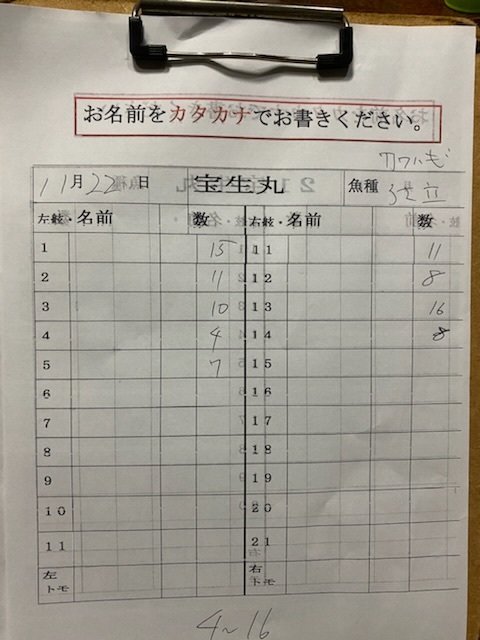 お名前をカタカナでお書きください。
カワハギ
11月22日 宝生丸 魚種
左舷・名前 数 右舷・名前 数
1 15 11 11
2 11 12 8
3 10 13 16
4 4 14 8
5 7 15
6 16
7 17
8 18
9 19
10 20
11 21
左トモ 右トモ
4~16